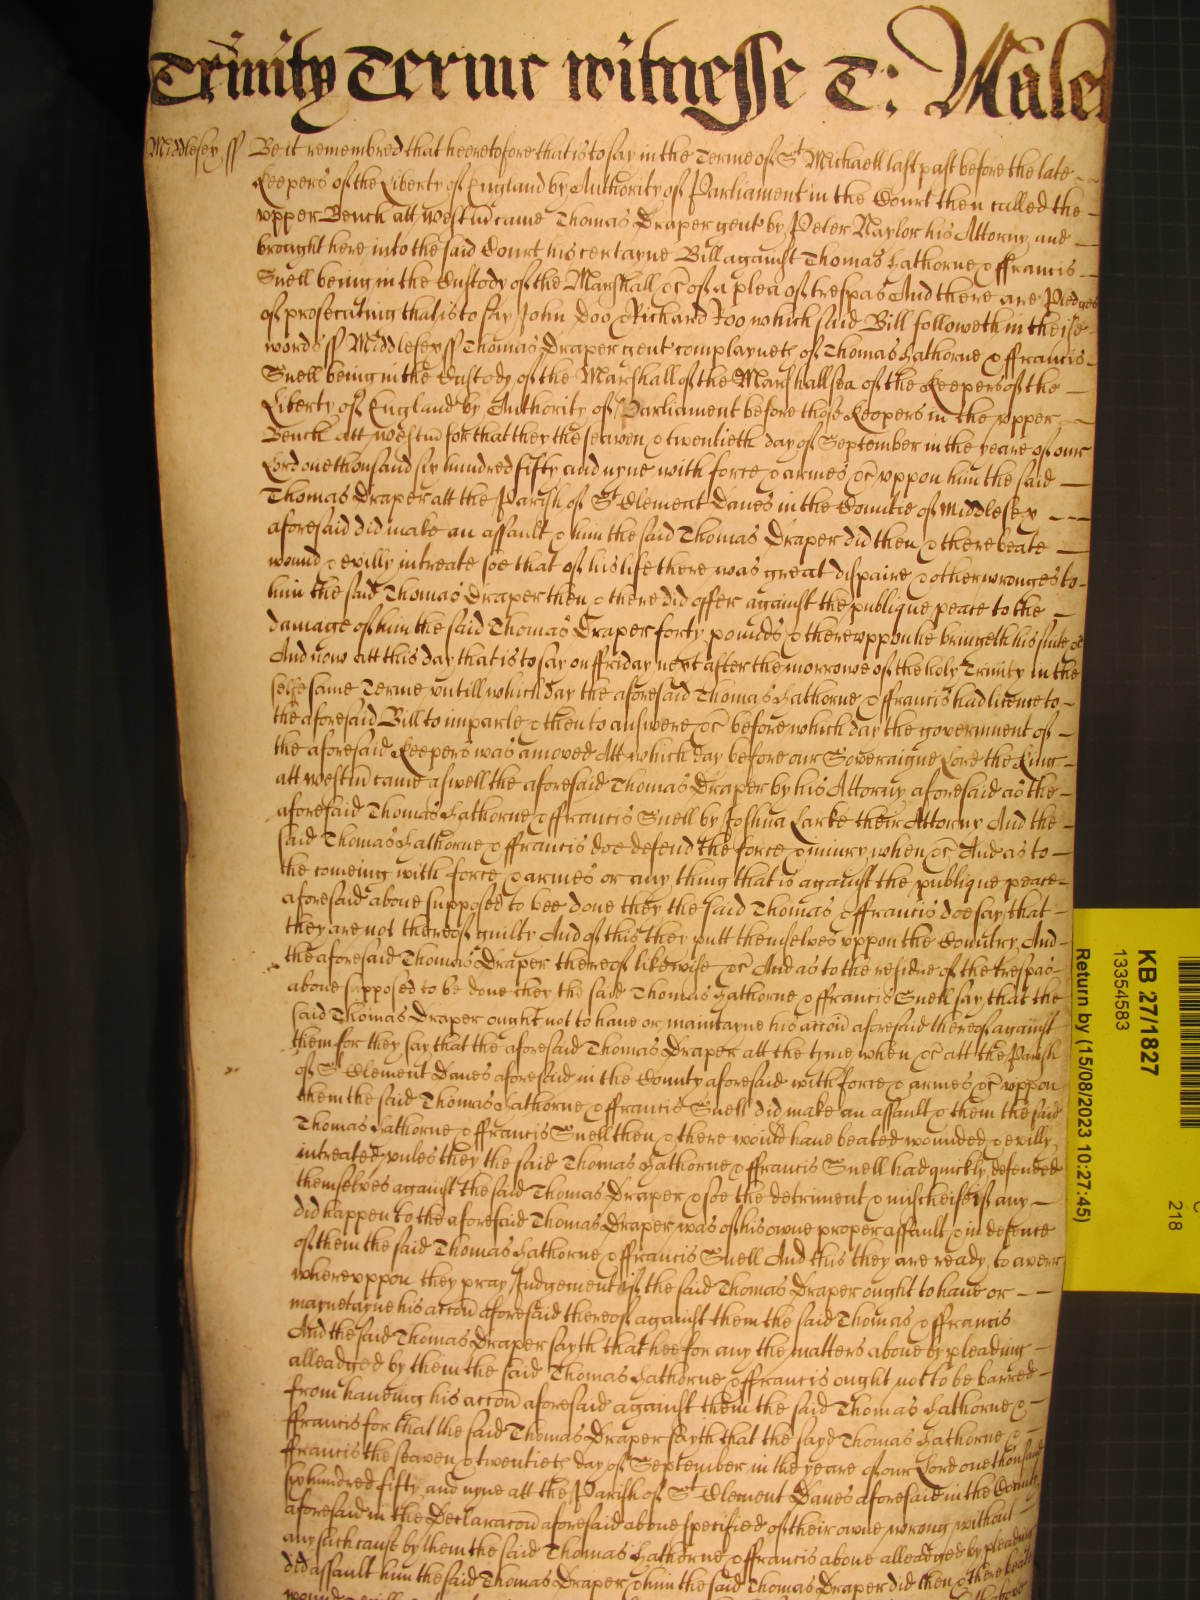 Trinity Terme witnesse T: Malet
Middlesex ss Be it remembred that heeretofore that is to say in the Terme of St Michaell last past before the late
Keepers of the Liberty of England by Authority of Parliament in the Court then called the
vpper Bench att westm came Thomas Draper gent by Peter Naylor his Attorny and
brought here into the said Court his certayne Bill against Thomas Hathorne & ffrancis
Snell being in the Custody of the Marshall &c of a plea of trespas And there are Pledges
of prosecuting that is to say John Doo & Richard Roo which said Bill followeth in theise
words ss Middlesex ss Thomas Draper gent complaynes of Thomas Hathorne & ffrancis
Snell being in the Custody of the Marshall of the Marshallsea of the Keepers of the
Liberty of England by Authority of Parliament before those Keepers in the vpper
Bench att westm for that they the seaven & twentieth day of September in the yeare of our
Lord one thousand six hundred fifty and nyne with force & armes &c vppon him the said
Thomas Draper att the Parish of St Clement Danes in the Countie of Middlesex
aforesaid did make an assault & him the said Thomas Draper did then & there beate
wound & evilly intreate soe that of his life there was great dispaire & other wronges to
him the said Thomas Draper then & there did offer against the publique peace to the
damage of him the said Thomas Draper forty pounds & therevppon he bringeth his suite &c
And now att this day that is to say on ffriday next after the morrowe of the holy Trinity in the
selfe same Terme vntill which day the aforesaid Thomas Hathorne & ffrancis had licence to
the aforesaid Bill to imparle & then to answere &c before which day the government of
the aforesaid Keepers was amoved Att which day before our Soveraigne Lord the King
att westm came aswell the aforesaid Thomas Draper by his Attorny aforesaid as the
aforesaid Thomas Hathorne & ffrancis Snell by Joshua Larke their Attorny And the
said Thomas Hathorne & ffrancis doe defend the force & iniury when &c And as to
the comeing with force & armes or any thing that is against the publique peace
aforesaid aboue supposed to bee done they the said Thomas & ffrancis doe say that
they are not thereof guilty And of this they putt themselves vppon the Country And
the aforesaid Thomas Draper thereof likewise &c And as to the residue of the trespas
aboue supposed to be done they the said Thomas Hathorne & ffrancis Snell say that the
said Thomas Draper ought not to haue or mayntayne his accon aforesaid thereof against
them for they say that the aforesaid Thomas Draper att the tyme when &c att the Parish
of St Clement Danes aforesaid in the County aforesaid with force & armes &c vppon
them the said Thomas Hathorne & ffrancis Snell did make an assault & them the said
Thomas Hathorne & ffrancis Snell then & there would haue beated wounded & evilly
intreated vnles they the said Thomas Hathorne & ffrancis Snell had quickly defended
themselves against the said Thomas Draper & soe the detriment & mischeife if any
did happen to the aforesaid Thomas Draper was of his owne proper assault & in defence
of them the said Thomas Hathorne & ffrancis Snell And this they are ready to averr
wherevppon they pray Iudgement if the said Thomas Draper ought to haue or
maynetayne his accon aforesaid thereof against them the said Thomas & ffrancis
And the said Thomas Draper sayth that hee for any the matters aboue by pleading
alleadged by them the said Thomas Hathorne & ffrancis ought not to be barred
from haueing his accon aforesaid against them the said Thomas Hathorne &
ffrancis for that the said Thomas Draper sayth that the sayd Thomas Hathorne &
ffrancis the seaven & twentieth day of September in the yeare of our Lord one thousand
six hundred fifty and nyne att the Parish of St Clement Danes aforesaid in the County
aforesaid in the Declaracon aforesaid aboue specified of their owne wrong without
any such cause by them the said Thomas Hathorne & ffrancis aboue alleadged by pleading
did assault him the said Thomas Draper & him the said Thomas Draper did then & there beate
KB 27/1827
13354583
Return by (15/08/2023 10:27:45)
218